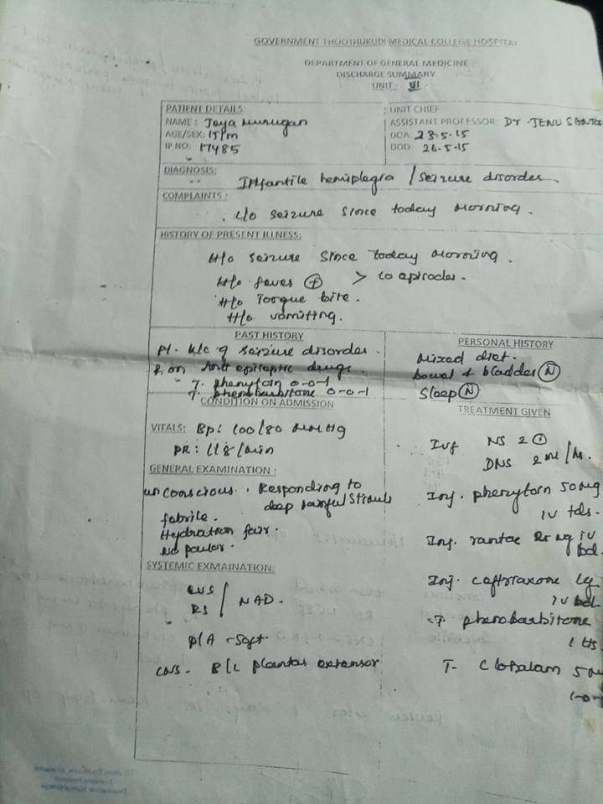 GOVERNMENT THOOTHUKUDI MEDICAL COLLEGE HOSPITAL
DEPARTMENT OF GENERAL MEDICINE
DISCHARGE SUMMARY
UNIT: VI
PATIENT DETAILS
NAME: Jeya Murugan
AGE/SEX: 17/m
IP NO: 17485
UNIT CHIEF
ASSISTANT PROFESSOR: Dr JENU
DOA: 23-5-15
DOD: 26-5-15
DIAGNOSIS:
Infantile hemiplegia / Seizure disorder.
COMPLAINTS:
c/o seizure since today morning.
HISTORY OF PRESENT ILLNESS:
H/o seizure since today morning.
H/o fever + > 10 episodes.
H/o Tongue bite.
H/o vomitting.
PAST HISTORY
pt. k/c of seizure disorder.
& on Anti epileptic drugs.
T. phenytoin 0-0-1
T. phenobarbitone 0-0-1
PERSONAL HISTORY
Mixed diet.
bowel & bladder N
Sleep N
CONDITION ON ADMISSION
VITALS: BP: 100/80 mmHg
PR: 118/min
GENERAL EXAMINATION:
unconscious. Responding to
deep painful Stimuli
febrile.
Hydration fair.
No pallor.
SYSTEMIC EXMAINATION:
CVS
RS NAD.
P/A - Soft
CNS - B/L plantar extensor
TREATMENT GIVEN
Ivf NS 2
DNS 2 ml/hr.
Inj. phenytoin 50mg
iv tds.
Inj. rantac mg iv
bd.
Inj. ceftriaxone 1g
iv bd.
T. phenobarbitone
1 HS
T. Clobazam 5 mg
1-0-1